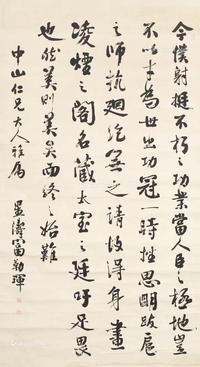 今僕射挺不朽之功業當人臣之極地豈
不以才為世出功冠一時挫思明跋扈
之師抗廻紇無厭之請故得身畫
淩煙之閣名藏太室之廷吁足畏
也然美則美矣而終之始難
中山仁兄大人雅属
孟濤富勒琿